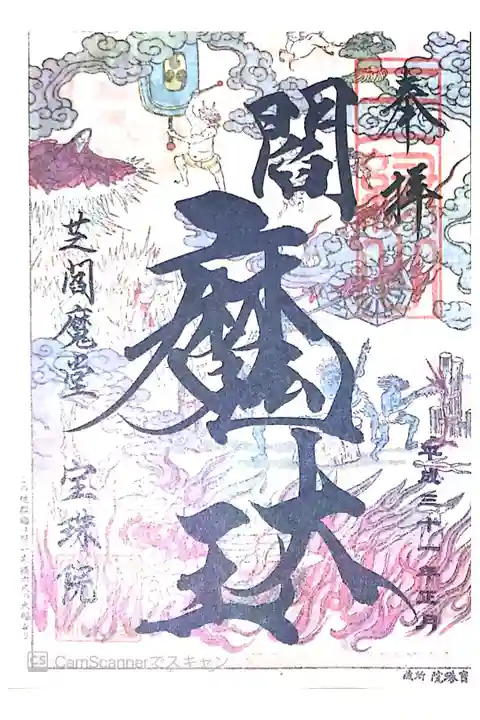 奉拝
閻魔大王
平成三十一年正月
芝閻魔堂 宝珠院
寳珠院 所蔵
CS CamScannerでスキャン